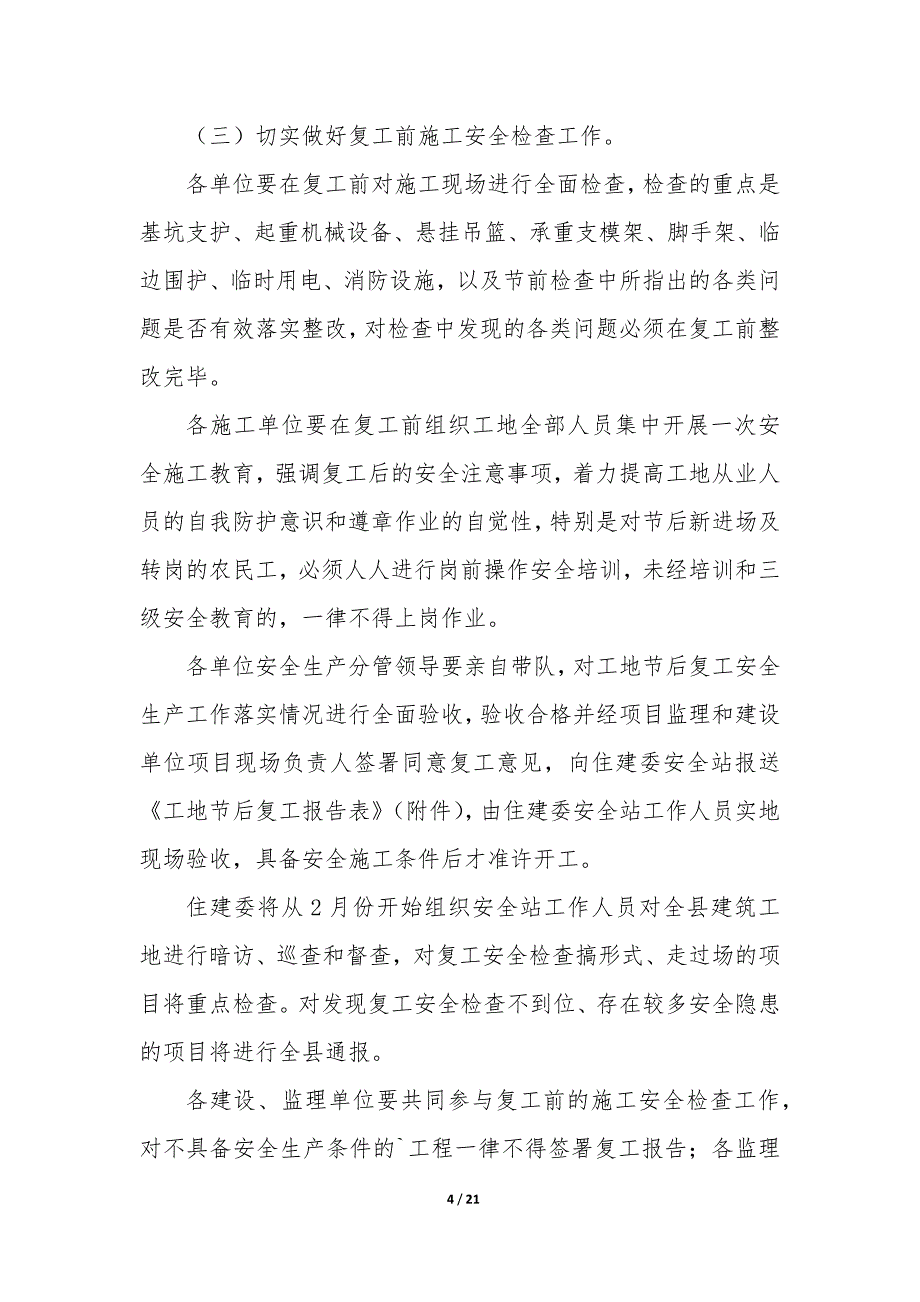 （三）切实做好复工前施工安全检查工作。
各单位要在复工前对施工现场进行全面检查，检查的重点是
基坑支护、起重机械设备、悬挂吊篮、承重支模架、脚手架、临
边围护、临时用电、消防设施，以及节前检查中所指出的各类问
题是否有效落实整改，对检查中发现的各类问题必须在复工前整
改完毕。
各施工单位要在复工前组织工地全部人员集中开展一次安
全施工教育，强调复工后的安全注意事项，着力提高工地从业人
员的自我防护意识和遵章作业的自觉性，特别是对节后新进场及
转岗的农民工，必须人人进行岗前操作安全培训，未经培训和三
级安全教育的，一律不得上岗作业。
各单位安全生产分管领导要亲自带队，对工地节后复工安全
生产工作落实情况进行全面验收，验收合格并经项目监理和建设
单位项目现场负责人签署同意复工意见，向住建委安全站报送
《工地节后复工报告表》（附件），由住建委安全站工作人员实地
现场验收，具备安全施工条件后才准许开工。
住建委将从2月份开始组织安全站工作人员对全县建筑工
地进行暗访、巡查和督查，对复工安全检查搞形式、走过场的项
目将重点检查。对发现复工安全检查不到位、存在较多安全隐患
的项目将进行全县通报。
各建设、监理单位要共同参与复工前的施工安全检查工作，
对不具备安全生产条件的`工程一律不得签署复工报告；各监理
4 / 21